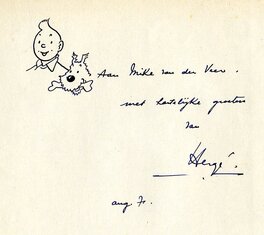 Aan Mike van der Veer.
met hartelijke groeten
van
Hergé.
aug 71.